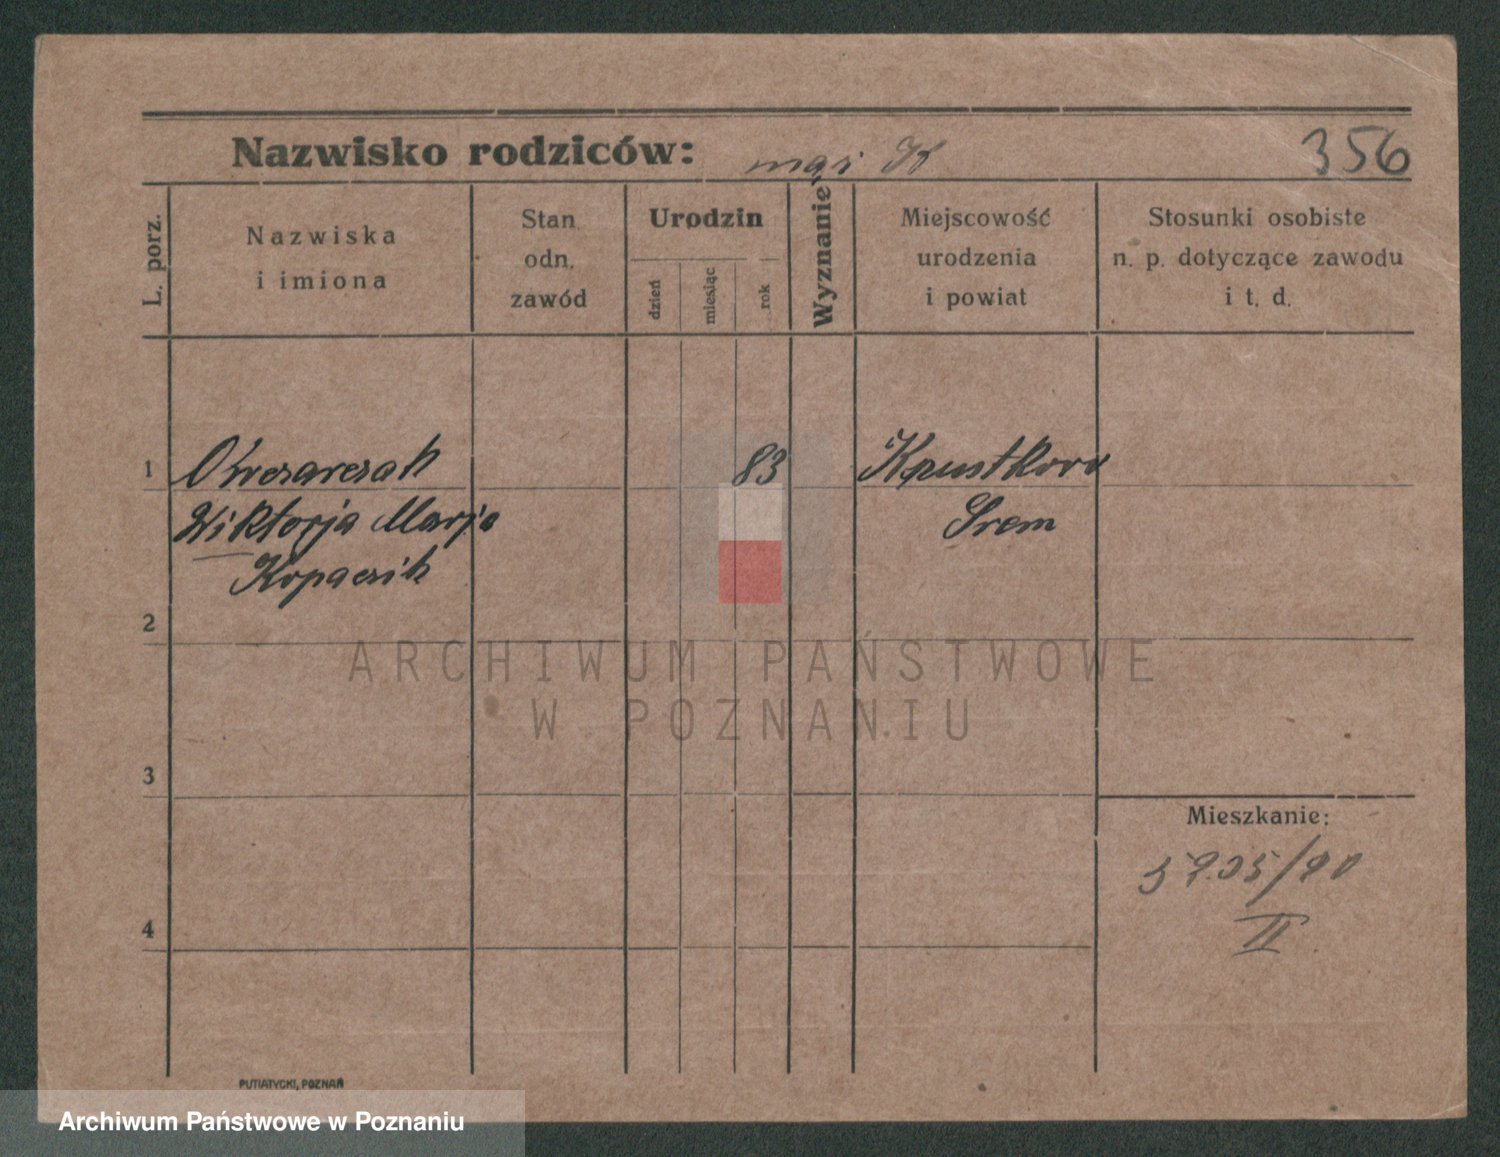 Nazwisko rodziców: mąż K 356
L. porz.
Nazwiska
i imiona
Stan
odn.
zawód
Urodzin
dzień
miesiąc
rok
Wyznanie
Miejscowość
urodzenia
i powiat
Stosunki osobiste
n. p. dotyczące zawodu
i t. d.
1 Owczarczak 83
Wiktorja Marja Śrem
Kopaczik
2
ARCHIWUM PAŃSTWOWE
W POZNANIU
3
Mieszkanie:
4
II
PUTIATYCKI, POZNAŃ
Archiwum Państwowe w Poznaniu